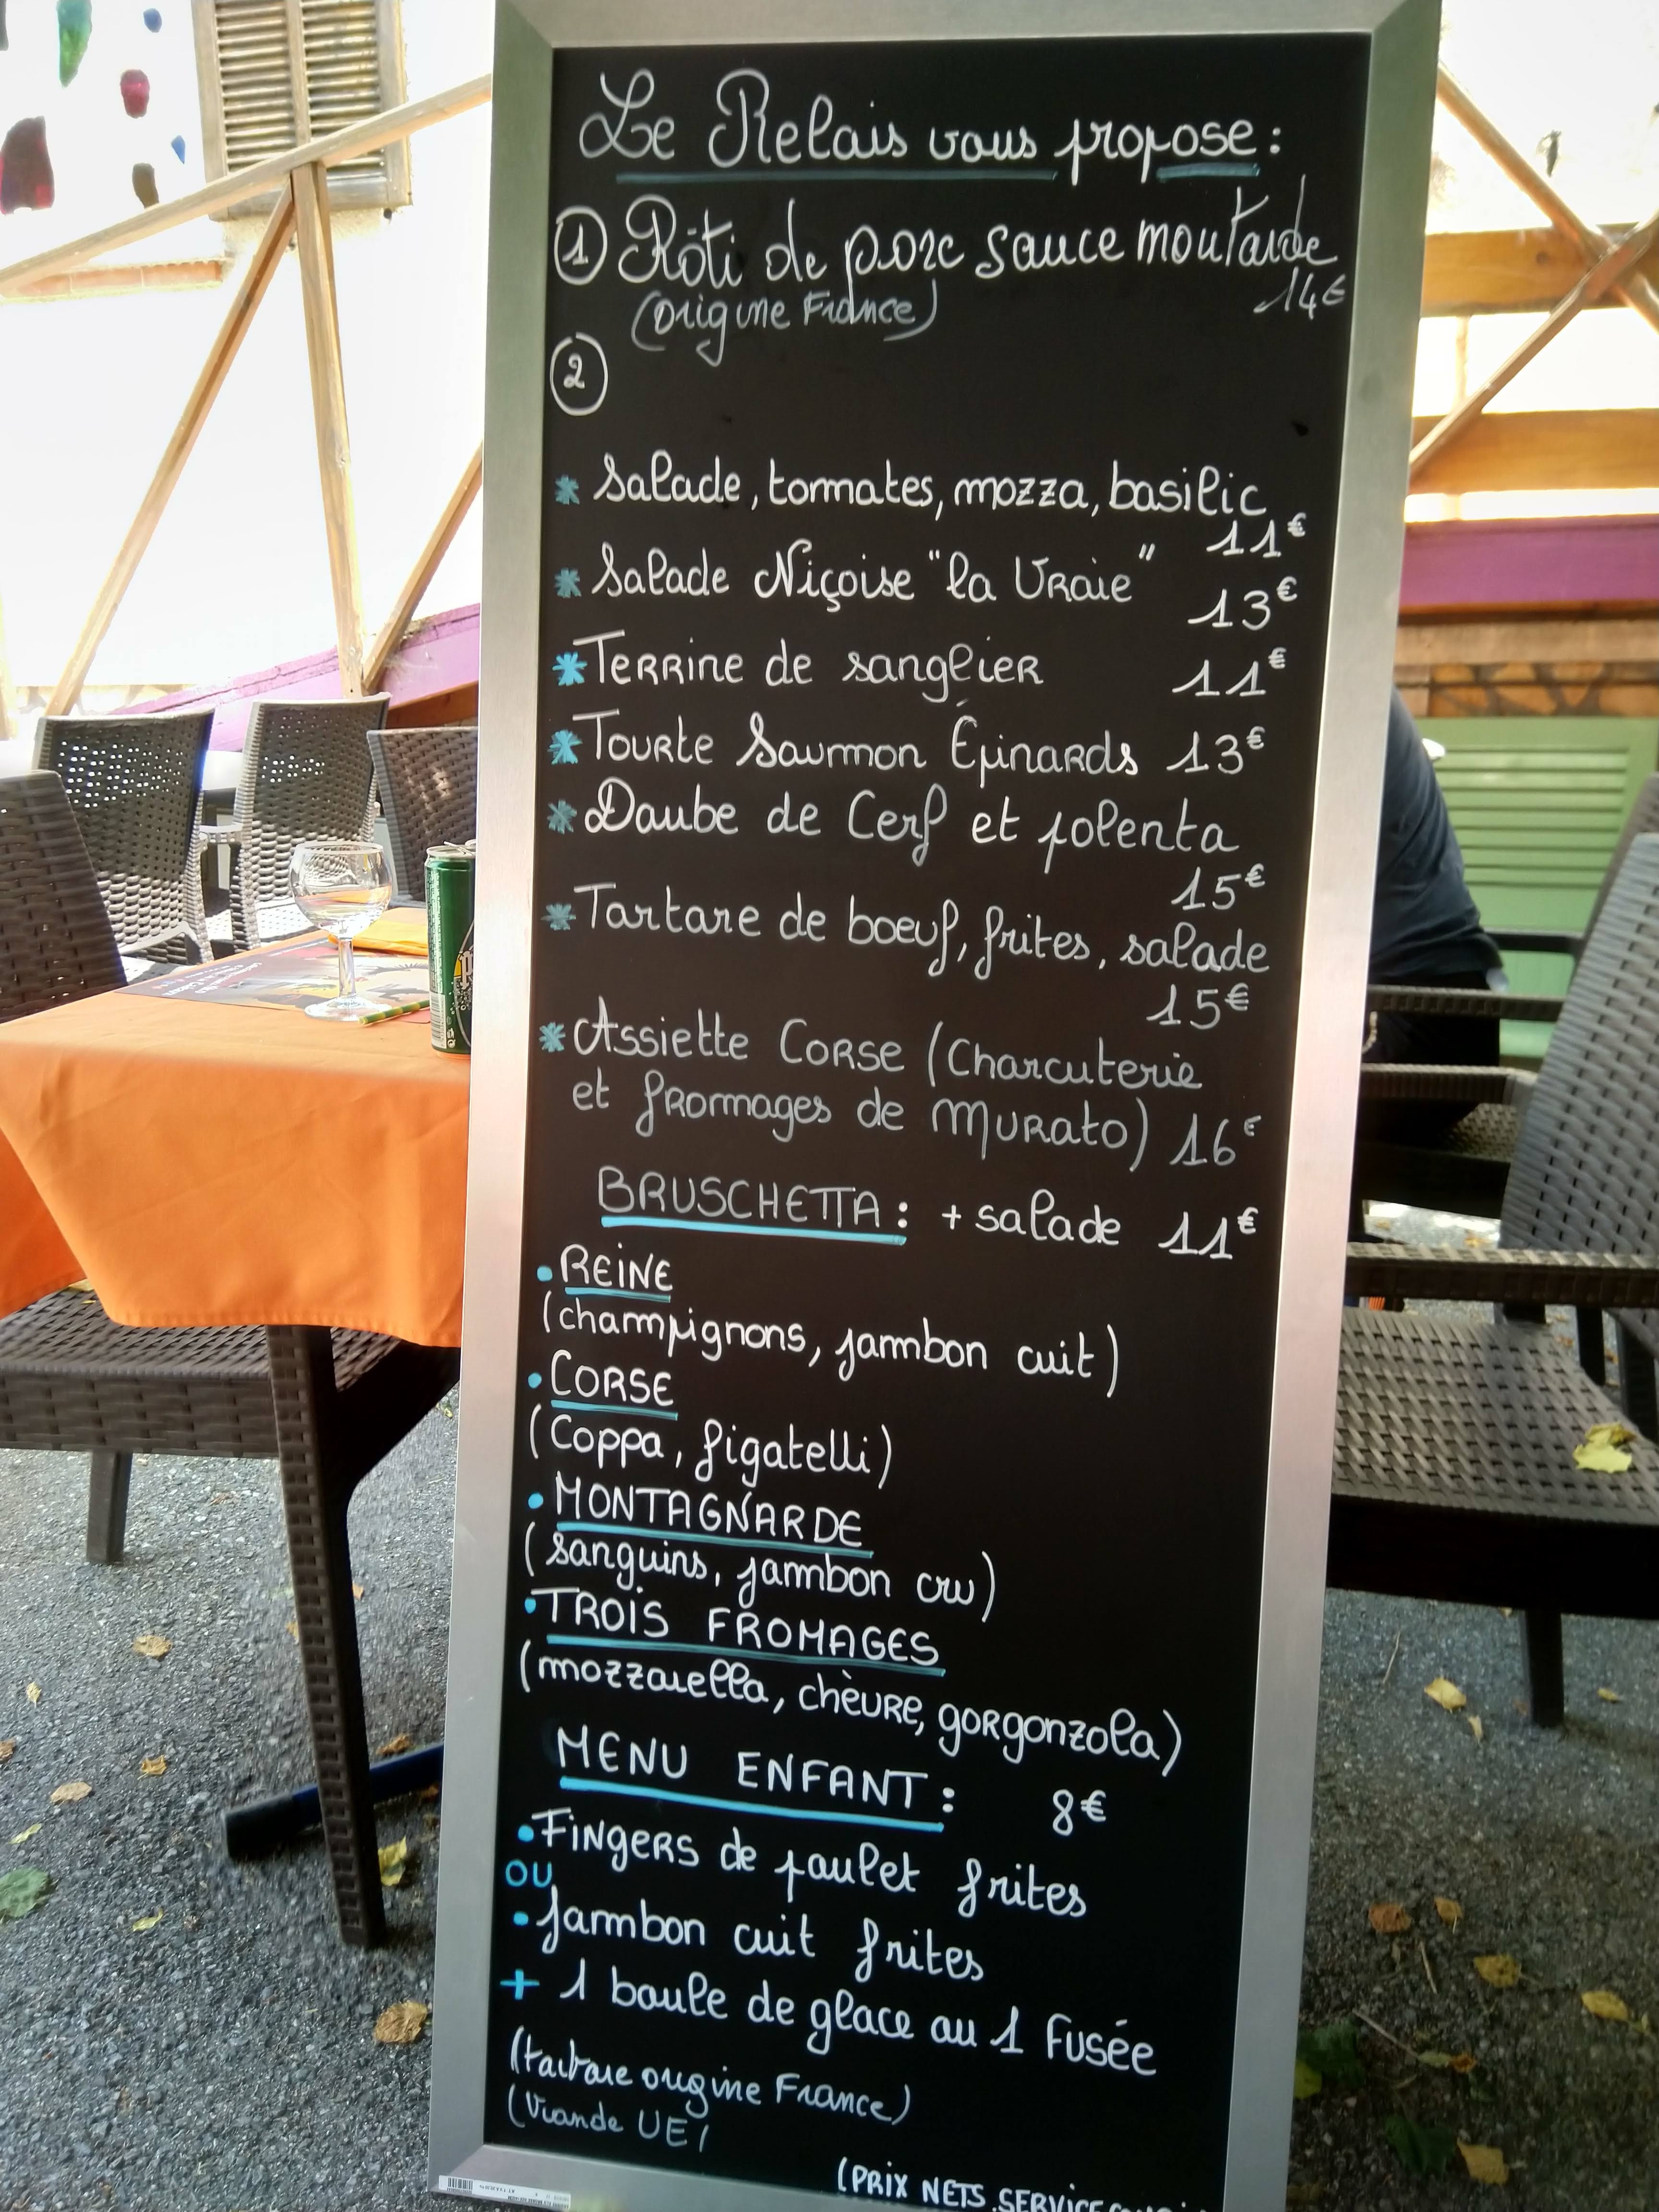 Le Relais vous propose :
1 Rôti de porc sauce moutarde
(origine France) 14€
2
* Salade, tomates, mozza, basilic
11€
* Salade Niçoise "la Vraie" 13€
* Terrine de sanglier 11€
* Tourte Saumon Épinards 13€
* Daube de Cerf et polenta
15€
* Tartare de boeuf, frites, salade
15€
* Assiette Corse (Charcuterie
et fromages de Murato) 16€
BRUSCHETTA : + salade 11€
• REINE
(champignons, jambon cuit)
• CORSE
(Coppa, figatelli)
• MONTAGNARDE
(sanguins, jambon cru)
• TROIS FROMAGES
(mozzarella, chèvre, gorgonzola)
MENU ENFANT : 8€
• Fingers de poulet frites
OU
• Jambon cuit frites
+ 1 boule de glace ou 1 Fusée
(tartare origine France)
(Viande UE)
(PRIX NETS, SERVICE